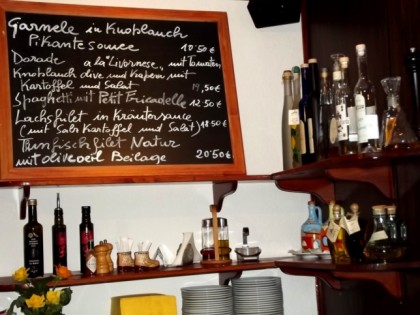 Garnele in Knoblauch
Pikantesouce 10'50€
Dorade a la "Livornese" mit Tomaten,
Knoblauch olive und Kapern mit
Kartoffel und Salat 19,50€
Spaghetti mit Petit Fricadelle 12.50€
Lachsfilet in Kräutersauce
(mit Salz Kartoffel und Salat) 18.50€
Thunfischfilet Natur
mit oliveoeil Beilage 20'50€